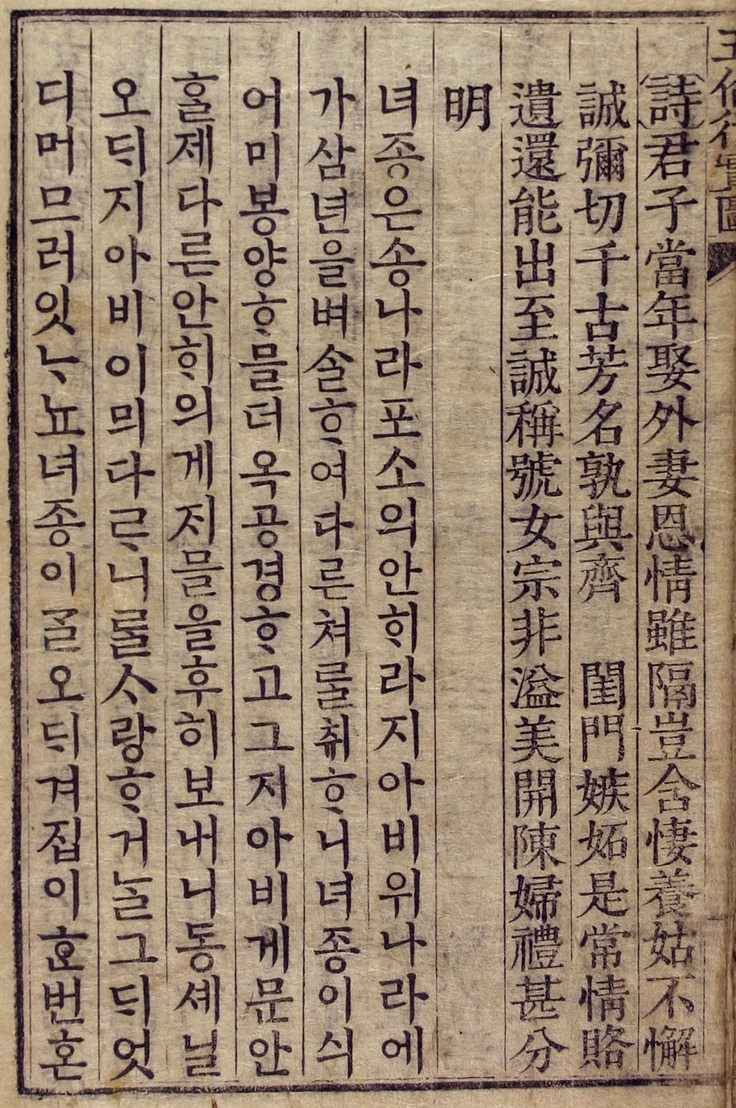 五倫行實圖
(詩)君子當年娶外妻恩情雖隔豈含悽養姑不懈
誠彌切千古芳名孰與齊　閨門嫉妬是常情賂
遺還能出至誠稱號女宗非溢美開陳婦禮甚分
明
녀죵은송나라포소의안ᄒᆡ라지아비위나라에
가삼년을벼ᄉᆞᆯᄒᆞ여다른쳐ᄅᆞᆯ취ᄒᆞ니녀종이싀
어미봉양ᄒᆞ믈더옥공경ᄒᆞ고그지아비게문안
ᄒᆞᆯ제다른안ᄒᆡ의게ᄌᆡ믈을후히보내니동셰닐
오ᄃᆡ지아비이믜다ᄅᆞ니ᄅᆞᆯᄉᆞ랑ᄒᆞ거ᄂᆞᆯ그ᄃᆡ엇
디머므러잇ᄂᆞ뇨녀종이ᄀᆞᆯ오ᄃᆡ겨집이ᄒᆞᆫ번혼